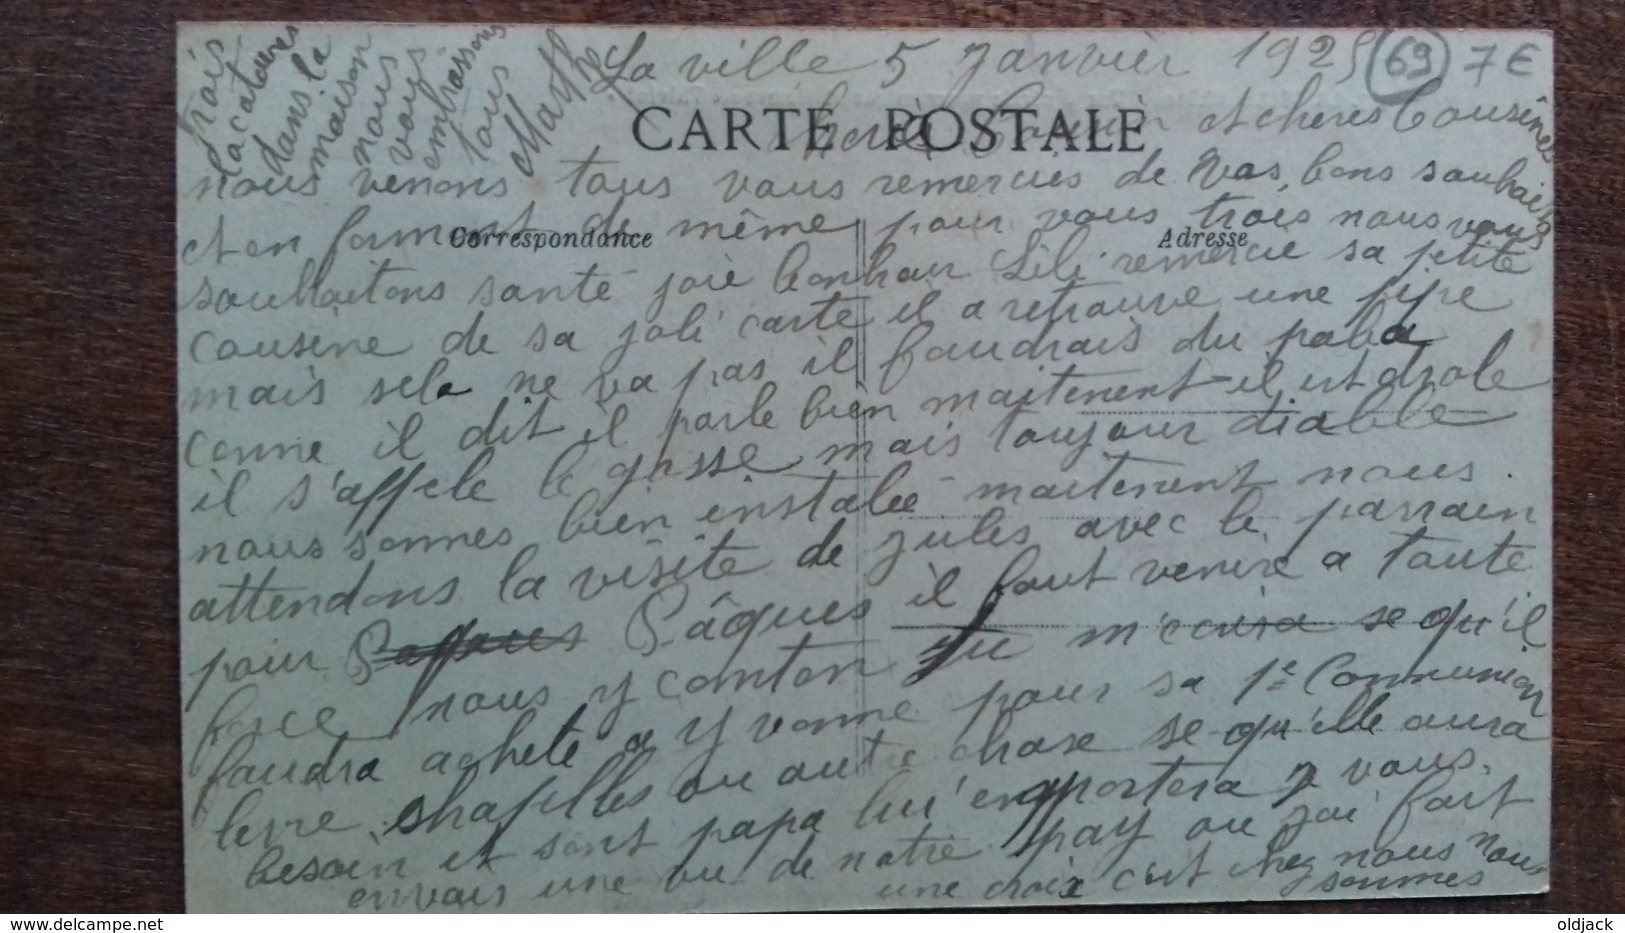 La ville 5 Janvier 1925
69 7€
CARTE POSTALE
cher Cousin et cheres Cousines
nous venons tous vous remercies de vos bons souhaits
Correspondance
Adresse
et en formont de même pour vous trois nous vous
souhaitons santé joie bonhaur Lili remercie sa petite
cousine de sa joli carte il a retrouve une pipe
mais sela ne va pas il faudrais du paba
conne il dit il parle bien maitenent il est drole
il s'appele le gosse mais toujour diable
nous sonnes bien instalée maitenent nous
attendons la visite de jules avec le parrain
pour Pâques il faut venire a toute
force nous y conton Tu m'ecrira se qu'il
faudra achete a yvonne pour sa 1e Communion
livre chapelles ou autre chose se qu'elle aura
besoin et sont papa lui enpportera je vous
envais une vu de notre pay ou jai fait
une croix c'est chez nous nous
sonmes
trois
lacatoires
dans la
maison
nous
vous
embrassons
tous
Marthe
oldjack
www.delcampe.net